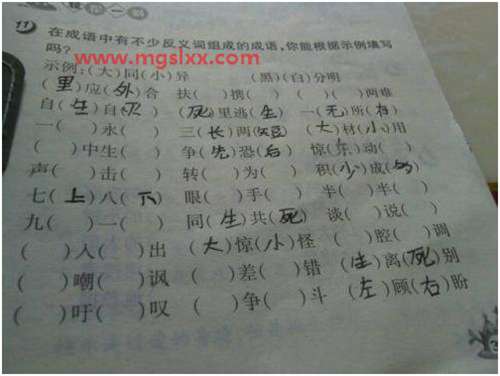 11
在成语中有不少反义词组成的成语,你能根据示例填写
吗?
www.mgslxx.com
示例:(大)同(小)异 (黑)(白)分明
(里)应(外)合 扶( )携( ) ( )( )两难
自(生)自(灭) (死)里逃(生) 一(无)所(有)
一( )永( ) 三(长)两(短) (大)材(小)用
( )中生( ) 争(先)恐(后) 惊( )动( )
声( )击( ) 转( )为( ) 积(小)成( )
七(上)八(下) 眼( )手( ) 半( )半( )
九( )一( ) 同(生)共(死) 谈( )说( )
( )入( )出 (大)惊(小)怪 ( )腔( )调
( )嘲( )讽 ( )差( )错 (生)离(死)别
( )吁( )叹 ( )争( )斗 (左)顾(右)盼